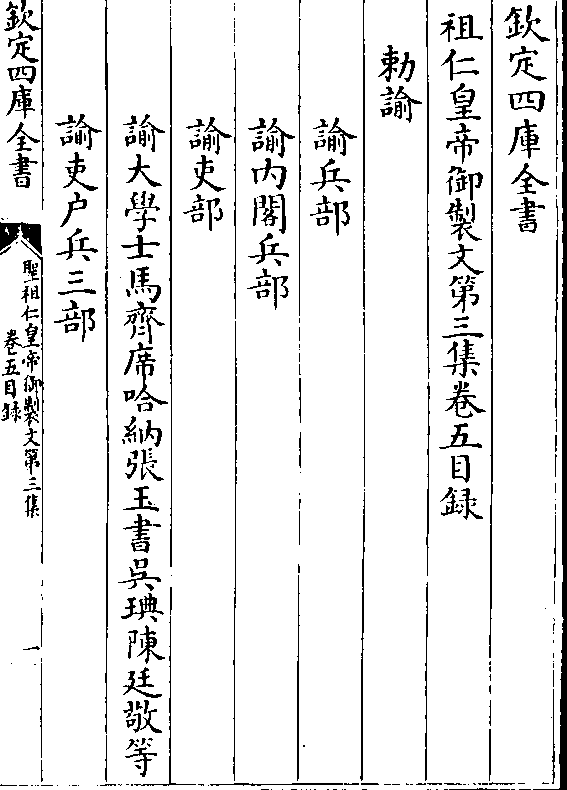 欽定四庫全書
祖仁皇帝御製文第三集卷五目録
勅諭
諭兵部
諭内閣兵部
諭吏部
諭大學士馬齊席哈納張玉書吳琠陳廷敬等
諭吏户兵三部
欽定四庫全書
聖祖仁皇帝御製文第三集
卷五目録
一